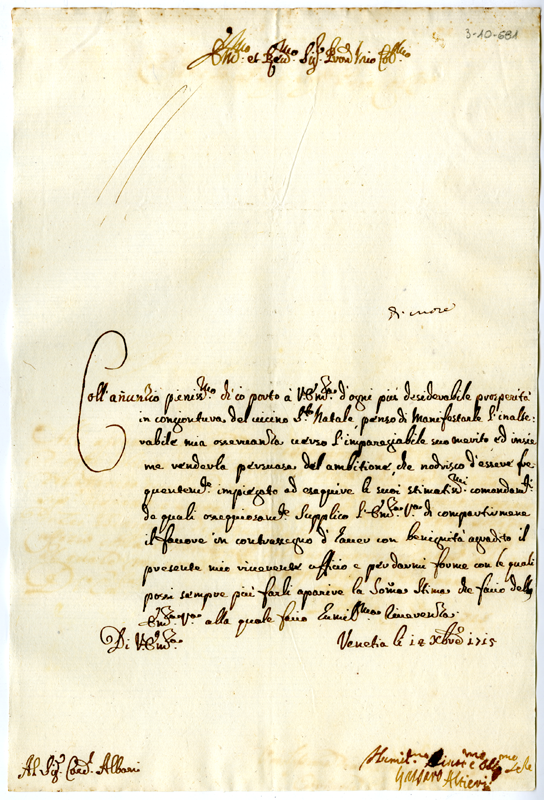 3-10-681
Em.mo et Rev.mo Sig.r Pron Col.mo
Coll'añuntio che porto à V. Em.za d'ogni più desiderabile prosperità
in congiontura del vicino S.to Natale penso di manifestarle l'inalte-
rabile mia osservanza verso l'impareggiabile suo merito, ed insie
me renderla persuasa del ambitione, che nodrisco d'essere fre
quentem.te impiegato ad eseguire li suoi stimatiss.mi comandam.ti
de quali ossequiosam.te supplico l'Em.za V.ra di compartirmene
il favore in contrasegno d'haver con benignità agradito il
presente mio riverente ufficio e per darmi forme con le quali
possi sempre più farli apparire la somã stima che facio dell
Em.za V.ra alla quale facio humil.ma riverenza
Di V. Em.za
Venetia li 12 Xbre 1715
Al Sig.r Card.l Albani
Humil.mo
Altieri